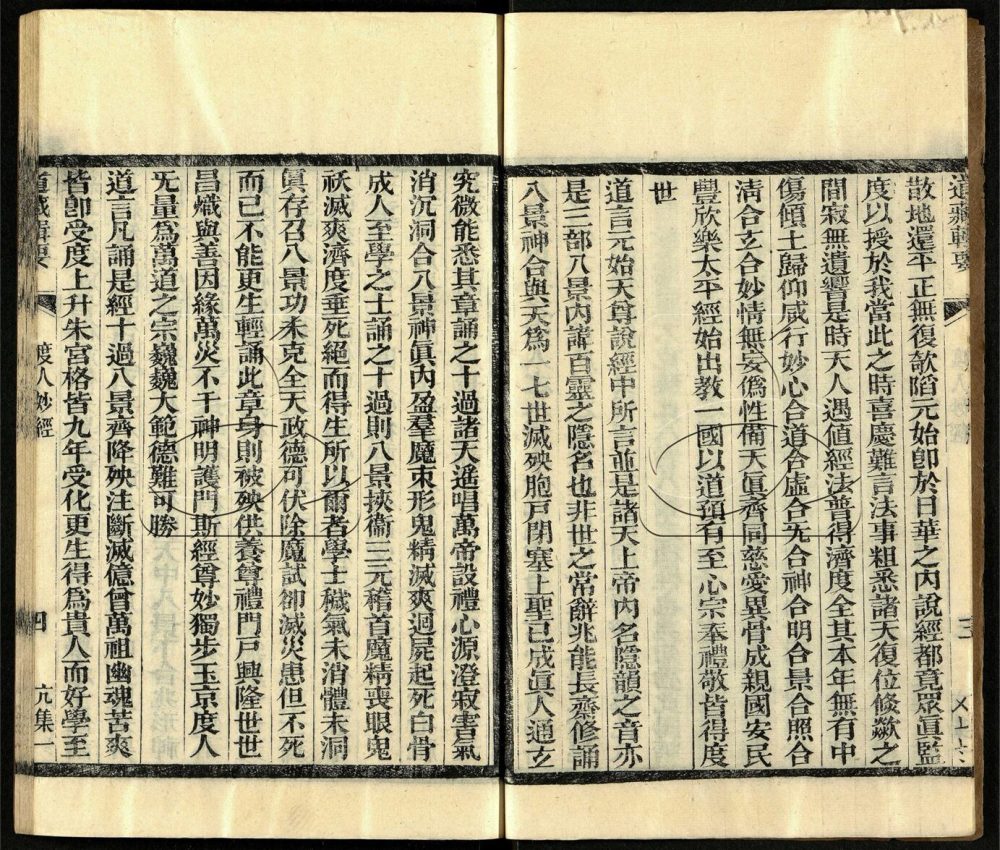 道藏輯要
散地還平正無復欹陷元始卽於日華之內說經都竟眾眞監
度以授於我當此之時喜慶難言法事粗悉諸天復位倏歘之
間寂無遺響是時天人遇值經法普得濟度全其本年無有中
傷傾土歸仰咸行妙心合道合虛合无合神合明合景合照合
淸合玄合妙情無妄僞性備天眞齊同慈愛異骨成親國安民
豐欣樂太平經始出教一國以道預有至心宗奉禮敬皆得度
世
道言元始天尊說經中所言並是諸天上帝內名隱韻之音亦
是三部八景內諱百靈之隱名也非世之常辭兆能長齋修誦
八景神合與天爲一七世滅殃胞戸閉塞上聖已成眞人通玄
究微能悉其章誦之十過諸天遙唱萬帝設禮心源澄寂害氣
消沉洞合八景神眞內盈羣魔束形鬼精滅爽迴屍起死白骨
成人至學之士誦之十過則八景挾衞三元稽首魔精喪眼鬼
祅滅爽濟度垂死絕而得生所以爾者學士穢氣未消體未洞
眞存召八景功未克全天政德可伏除魔試卻滅災患但不死
而已不能更生輕誦此章身則被殃供養尊禮門戸興隆世世
昌熾與善因緣萬災不干神明護門斯經尊妙獨步玉京度人
无量爲萬道之宗巍巍大範德難可勝
道言凡誦是經十過八景齊降殃注斷滅億曾萬祖幽魂苦爽
皆卽受度上升朱宮格皆九年受化更生得爲貴人而好學至
道藏輯要 度人妙經 四 亢集一